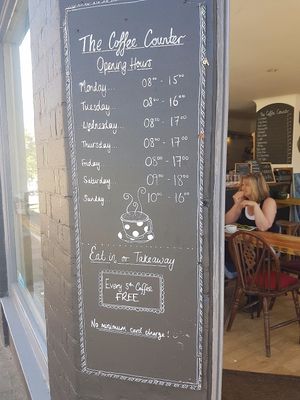 The Coffee Counter
Opening Hours
Monday... 08⁰⁰ - 15⁰⁰
Tuesday... 08⁰⁰ - 16⁰⁰
Wednesday... 08⁰⁰ - 17⁰⁰
Thursday... 08⁰⁰ - 17⁰⁰
Friday... 08⁰⁰ - 17⁰⁰
Saturday... 09⁰⁰ - 18⁰⁰
Sunday... 10⁰⁰ - 16⁰⁰
Eat in or Takeaway
Every 5th Coffee
FREE
No minimum card charge!